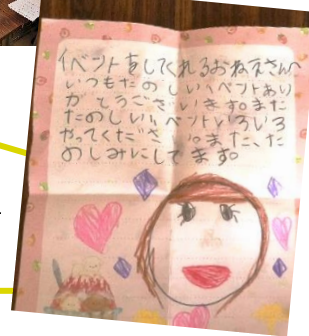 イベントをしてくれるおねえさんへ
いつもたのしいイベントあり
がとうございます。また
たのしいイベントいろいろ
やってください。また、た
のしみにしてます。